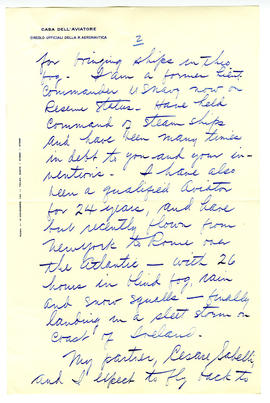 CASA DELL'AVIATORE
CIRCOLO UFFICIALI DELLA R. AERONAUTICA
2
for bringing ships in the
fog. I am a former Lieut.
Commander US Navy now on
Reserve Status. Have held
Command of Steam Ships
and have been many times
in debt to you and your in-
ventions. I have also
been a qualified Aviator
for 24 years, and have
but recently flown from
New York to Rome over
the Atlantic — with 26
hours in blind fog, rain
and snow squalls — finally
landing in a sleet storm on
Coast of Ireland.
My partner, Cesare Sabelli
and I expect to fly back to